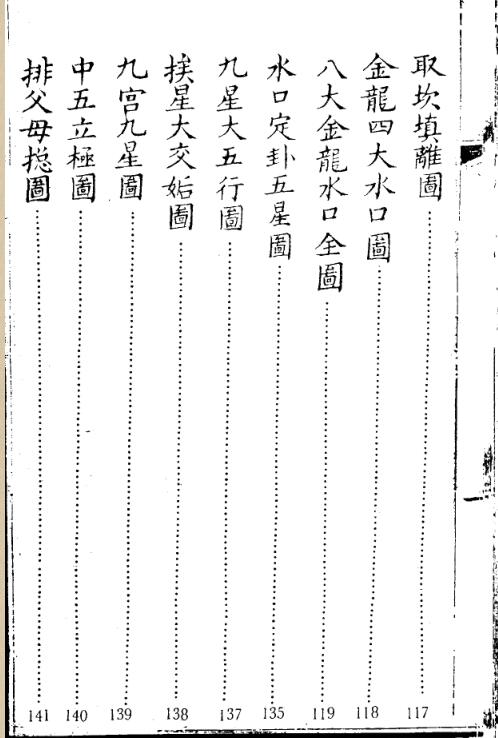 取坎填離圖……117
金龍四大水口圖……118
八大金龍水口全圖……119
水口定卦五星圖……135
九星大五行圖……137
挨星大交姤圖……138
九宮九星圖……139
中五立極圖……140
排父母摠圖……141